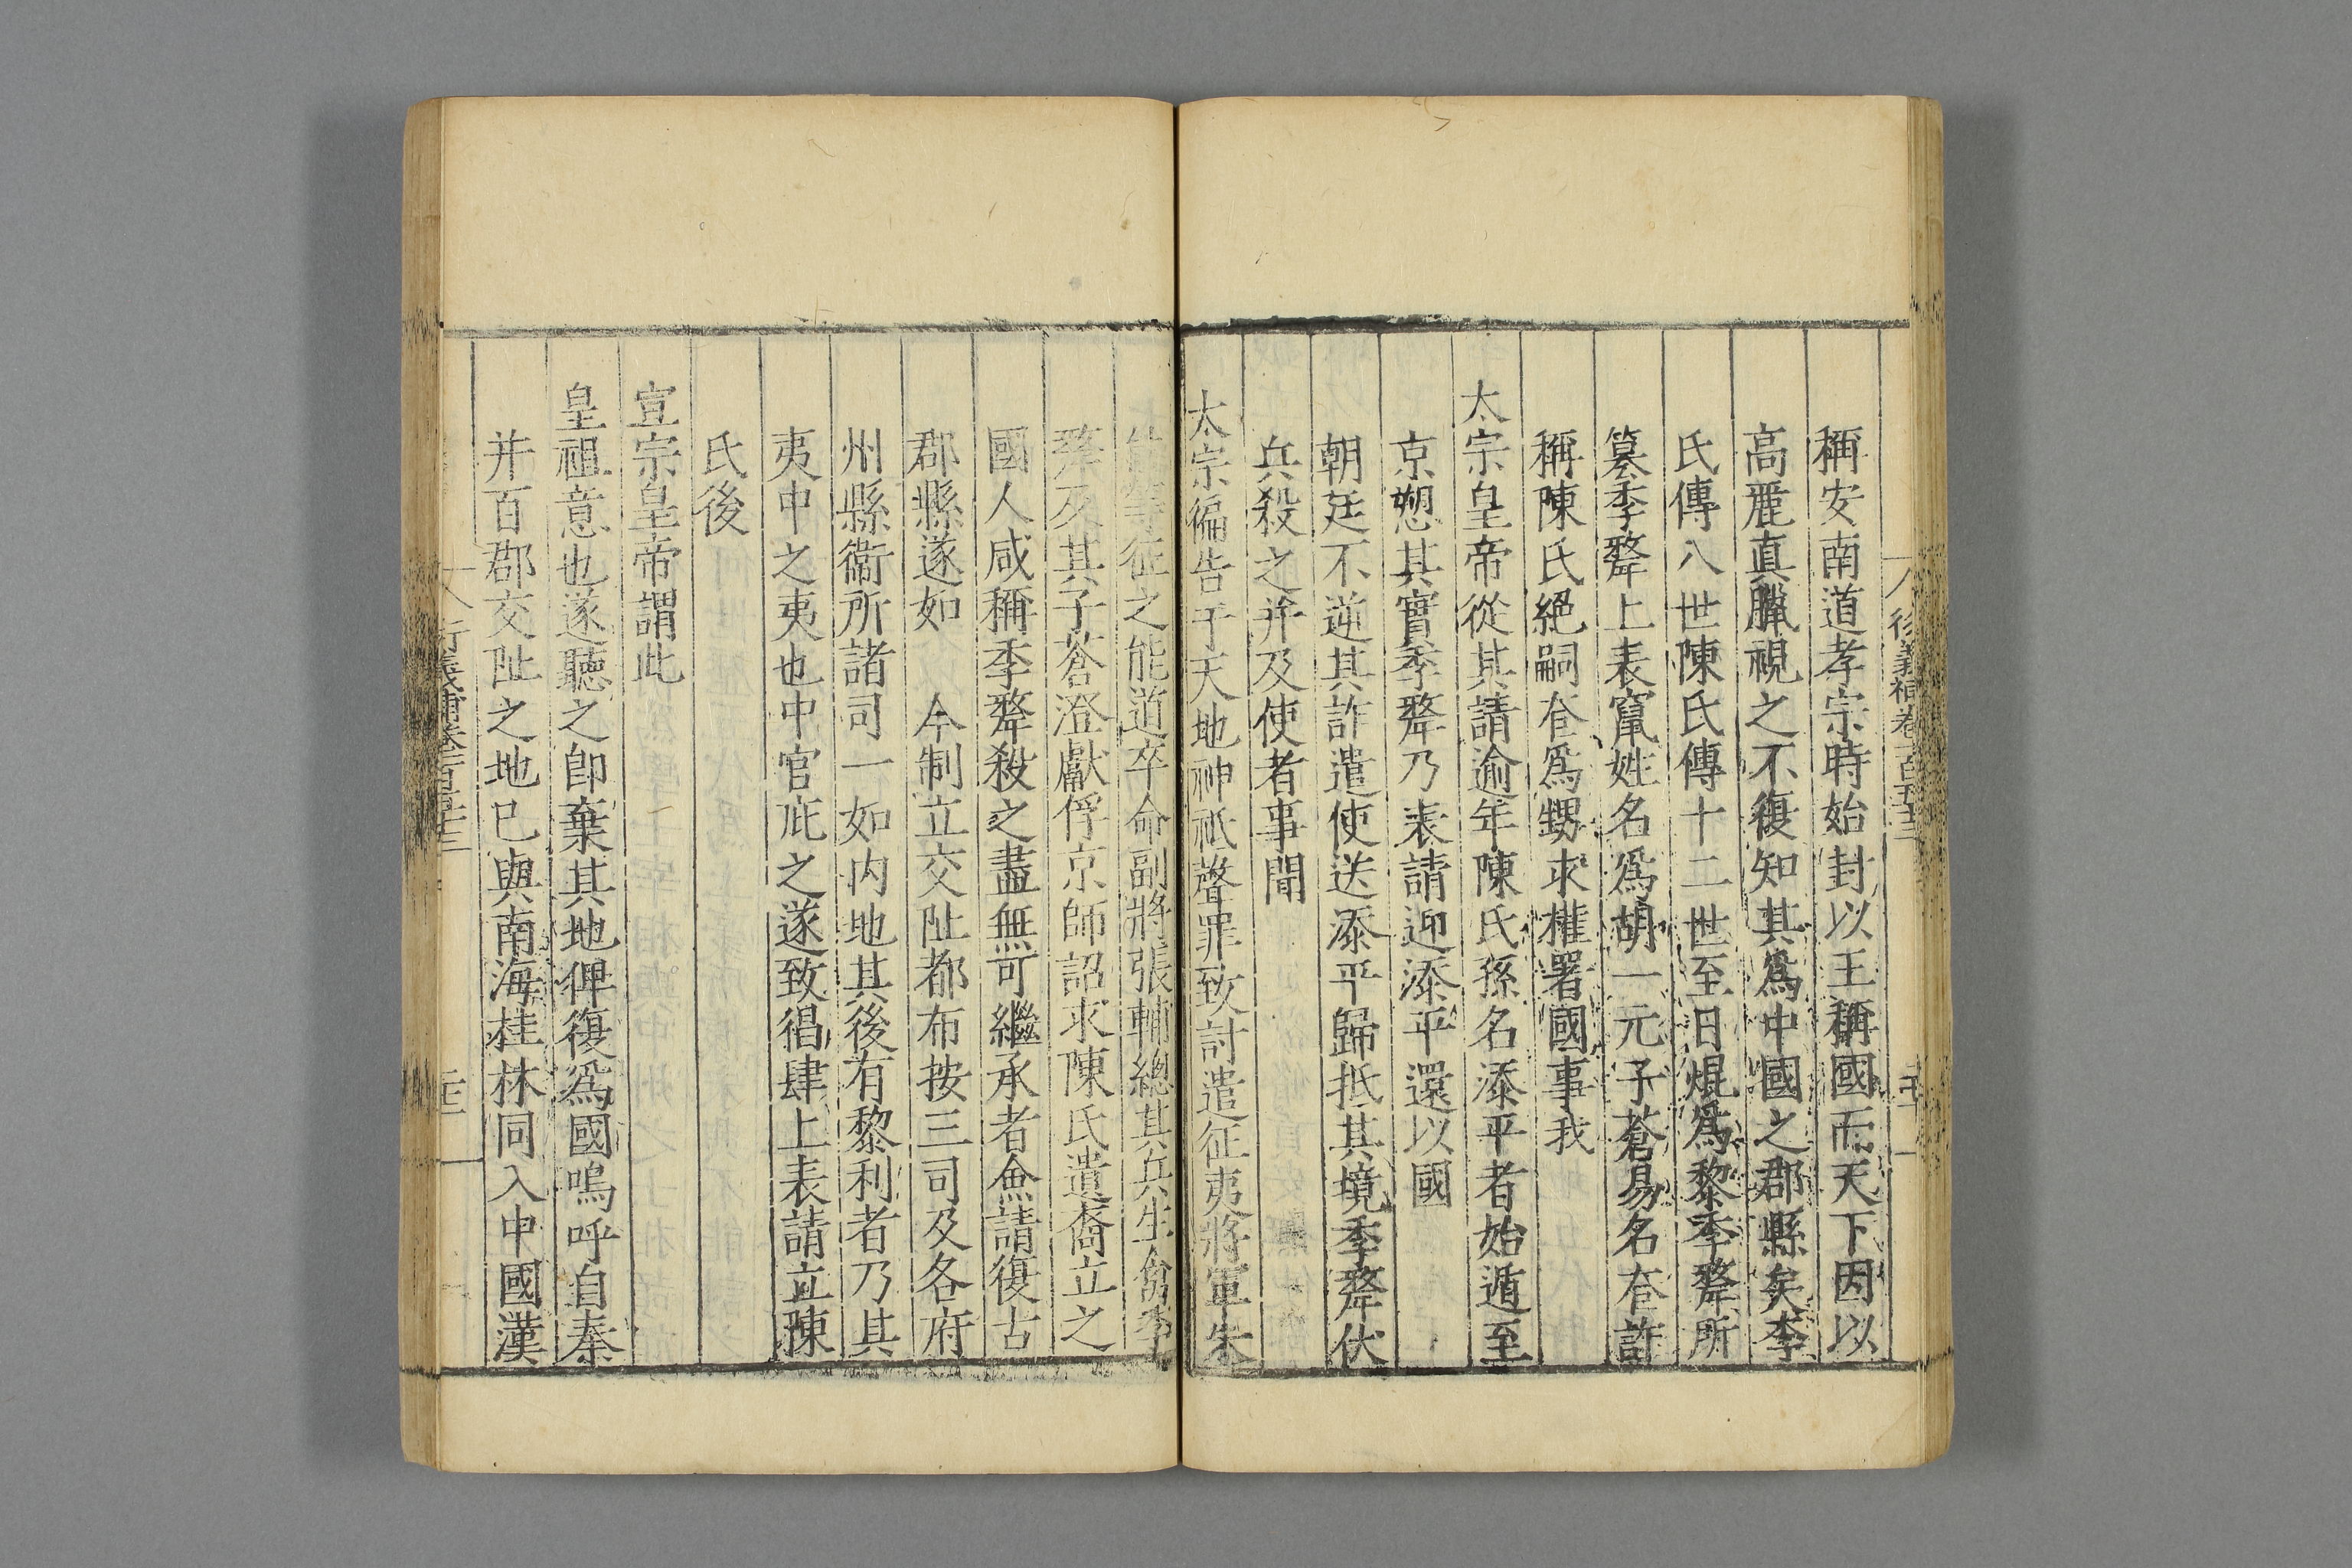 稱安南道孝宗時始封以王稱國而天下因以
高麗真臘視之不復知其爲中國之郡縣矣李
氏傳八世陳氏傳十二世至日焜爲黎季犛所
篡季犛上表竄姓名爲胡一元子蒼易名㚖詐
稱陳氏絕嗣㚖爲甥求權署國事我
太宗皇帝從其請逾年陳氏孫名添平者始遁至
京愬其實季犛乃表請迎添平還以國
朝廷不逆其詐遣使送添平歸抵其境季犛伏
兵殺之并及使者事聞
太宗徧告于天地神祇聲罪致討遣征夷將軍朱
等征之能道卒命副將張輔總其兵生擒季
犛及其子蒼澄獻俘京師詔求陳氏遺裔立之
國人咸稱季犛殺之盡無可繼承者僉請復古
郡縣遂如 今制立交阯都布按三司及各府
州縣衞所諸司一如内地其後有黎利者乃其
夷中之夷也中官庇之遂致猖肆上表請立陳
氏後
宣宗皇帝謂此
皇祖意也遂聽之卽棄其地俾復爲國嗚呼自秦
并百郡交阯之地已與南海桂林同入中國漢
衍義補卷一百五十三